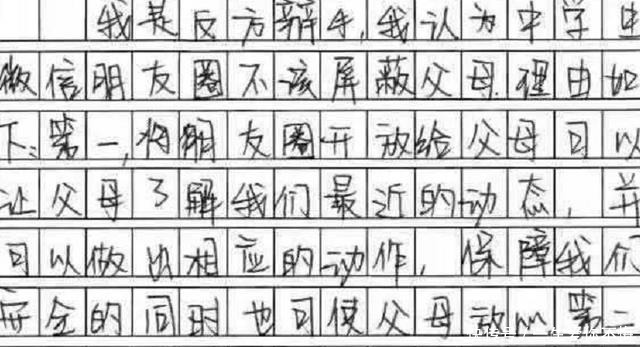 我是反方辩手,我认为中学生
微信朋友圈不该屏蔽父母.理由如
下:第一,将朋友圈开放给父母可以
让父母了解我们最近的动态,并
可以做出相应的动作,保障我们
安全的同时也可使父母放心第二